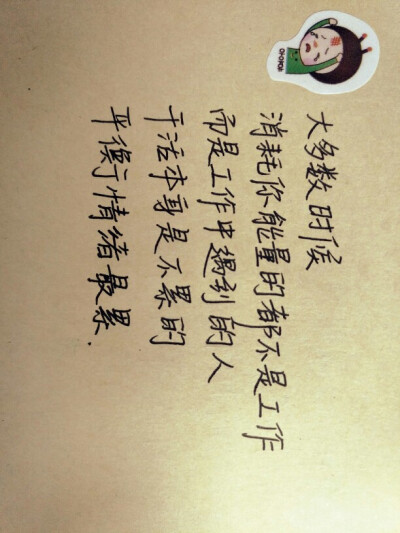 大多数时候
消耗你能量的都不是工作
而是工作中遇到的人
干活本身是不累的
平衡于情绪最累.